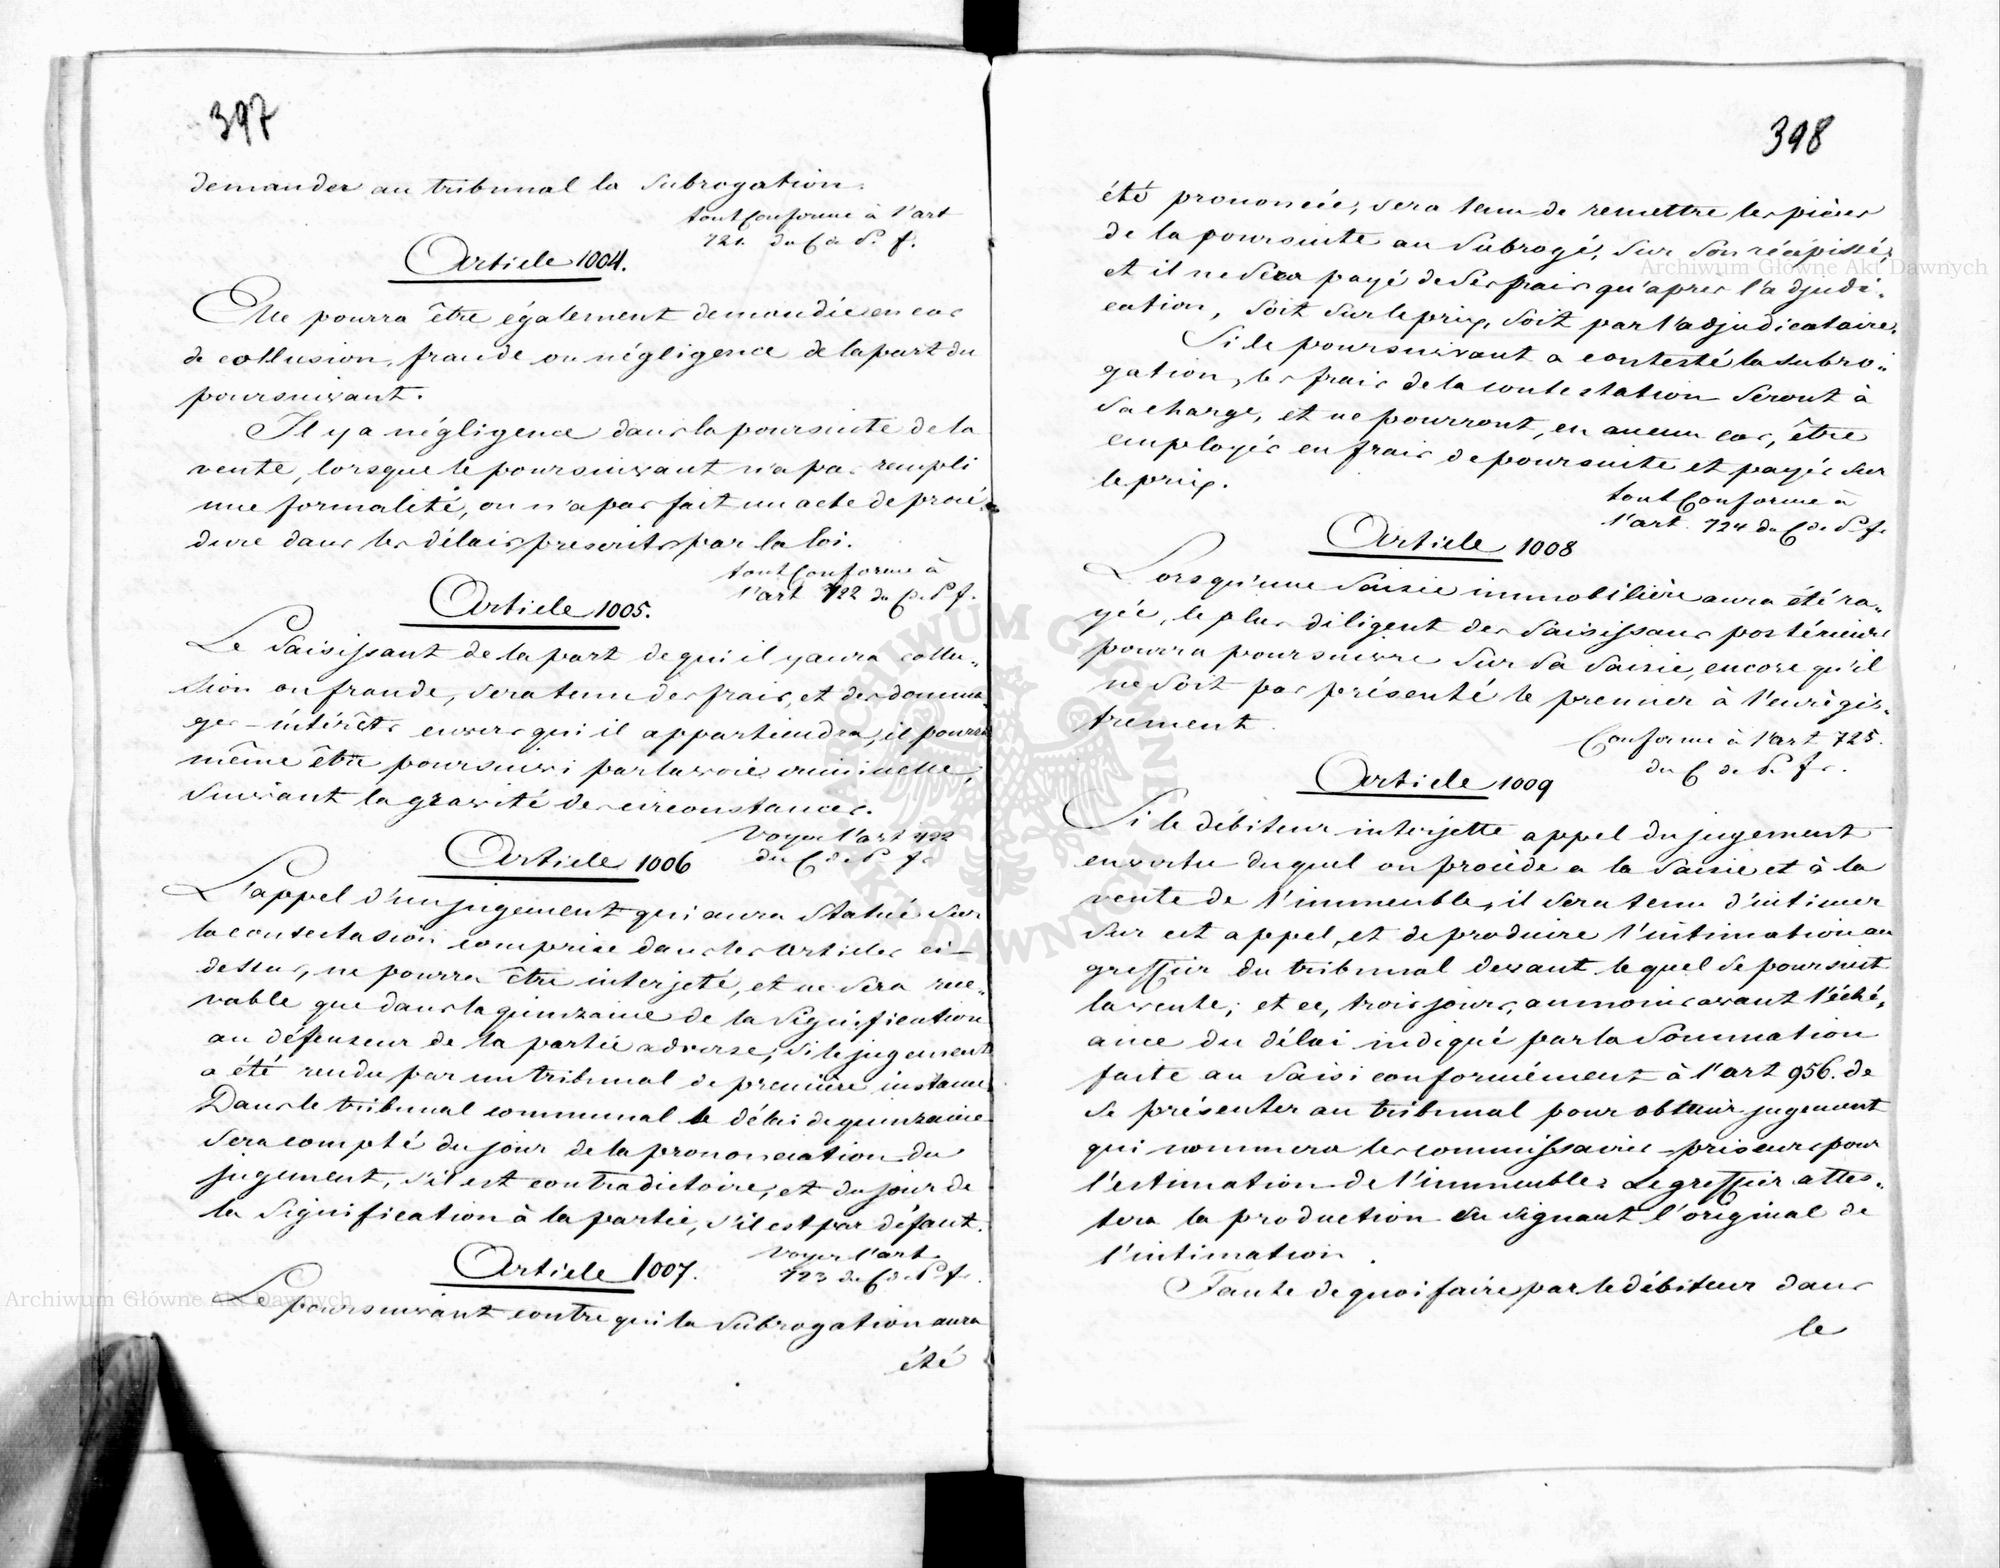 397
demander au tribunal la subrogation.
tout Conforme à l'art
721. du C de P. f.
Article 1004.
Elle pourra être également demandée en cas
de collusion, fraude ou négligence de la part du
poursuivant.
Il y a négligence dans la poursuite de la
vente, lorsque le poursuivant n'a pas rempli
une formalité, ou n'a pas fait un acte de procé-
dure dans les délais prescrits par la loi.
tout Conforme à
l'art 722 du C. P f.
Article 1005.
Le Saisissant de la part de qui il y aura collu-
sion ou fraude, sera tenu des frais, et des domma-
ges-intérêts envers qui il appartiendra, il pourra
même être poursuivi par la voie criminelle,
suivant la gravité des circonstances.
Voyez l'art 722
du C de P. fr
Article 1006
L'appel d'un jugement qui aura statué sur
la contestasion comprise dans les articles ci-
dessus, ne pourra être interjeté, et ne sera rece-
vable que dans la quinzaine de la signification
au défenseur de la partie adverse, si le jugement
a été rendu par un tribunal de première instance
Dans le tribunal communal le délai de quinzaine
sera compté du jour de la prononciation du
jugement, s'il est contradictoire, et du jour de
la signification à la partie, s'il est par défaut.
Voyez l'art.
723 du C de P. fr.
Article 1007.
Le poursuivant contre qui la subrogation aura
été
398
été prononcée, sera tenu de remettre les pièces
de la poursuite au subrogé, sur son récépissé,
et il ne sera payé de ses frais qu'après l'adjudi-
cation, soit sur le prix, soit par l'adjudicataire.
Si le poursuivant a contesté la subro-
gation, les frais de la contestation seront à
sa charge, et ne pourront, en aucun cas, être
employés en frais de poursuite et payés sur
le prix.
tout Conforme à
l'art. 724 du C de P. fr
Article 1008
Lorsqu'une saisie immobilière aura été ra-
yée, le plus diligent des saisissans postérieurs
pourra poursuivre sur sa saisie, encore qu'il
ne soit pas présenté le premier à l'enrégis-
trement.
Conforme à l'art 725.
du C de P. fr.
Article 1009
Si le débiteur interjette appel du jugement
en vertu duquel on procède a la saisie et à la
vente de l'immeuble, il sera tenu d'intimer
sur cet appel, et de produire l'intimation au
greffier du tribunal devant lequel se poursuit
la vente; et ce, trois jours, au moins avant l'éché-
ance du délai indiqué par la sommation
faite au saisi conformément à l'art 956. de
se présenter au tribunal pour obtenir jugement
qui nommera les commissaires-priseurs pour
l'estimation de l'immeuble. Le greffier attes-
tera la production en signant l'original de
l'intimation.
Faute de quoi faire par le débiteur dans
le
Archiwum Główne Akt Dawnych
Archiwum Główne Akt Dawnych
ARCHIWUM GŁÓWNE AKT DAWNYCH